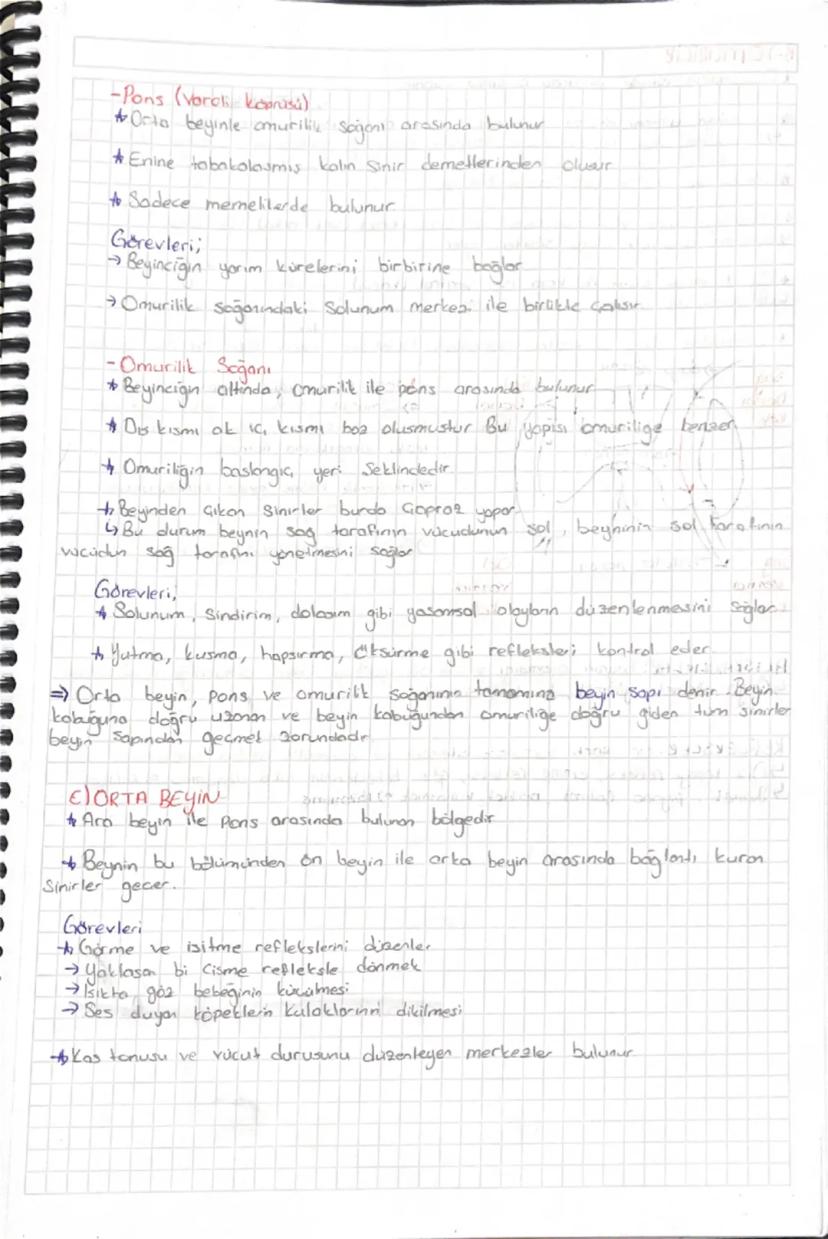 -Pons (Varoli köprüsü)
* Orta beyinle omurilik soğanı arasında bulunur
* Enine tabakalaşmış kalın sinir demetlerinden oluşur
* Sadece memelilerde bulunur
Görevleri;
→ Beyinciğin yarım kürelerini birbirine bağlar
→ Omurilik soğanındaki Solunum merkezi ile birlikte çalışır
- Omurilik Soğanı
* Beyinciğin altında, omurilik ile pons arasında bulunur
* Dış kısmı ak iç kısmı boz oluşmuştur Bu yapısı omuriliğe benzer
* Omuriliğin başlangıç yeri Şeklindedir
* Beyinden Çıkan Sinirler burda Çapraz yapar
↳ Bu durum beynin sağ tarafının vücudunun sol, beyninin sol tarafının
vücüdun sağ tarafını yönetmesini sağlar
Görevleri;
* Solunum, Sindirim, dolaşım gibi yaşamsal olayların düzenlenmesini sağlar
* Yutma, kusma, hapşırma, Öksürme gibi refleksleri kontrol eder
⇒ Orta beyin, pons ve omurilik soğanının tamamına beyin sapı denir. Beyin
kabuğuna doğru uzanan ve beyin kabuğundan omuriliğe doğru giden tüm sinirler
beyin sapından geçmek zorundadır
C) ORTA BEYİN
* Ara beyin ile Pons arasında bulunan bölgedir
* Beynin bu bölümünden ön beyin ile arka beyin arasında bağlantı kuran
Sinirler geçer.
Görevleri
* Görme ve işitme reflekslerini düzenler
→ Yaklaşan bi Cisme refleksle dönmek
→ Işıkta göz bebeğinin küçülmesi
→ Ses duyan köpeklerin kulaklarının dikilmesi
* Kas tonusu ve vücut duruşunu düzenleyen merkezler bulunur